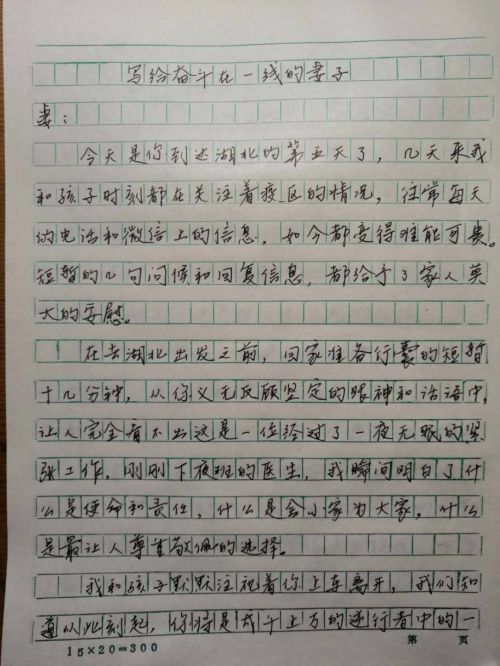 写给奋斗在一线的妻子
妻：
今天是你到达湖北的第五天了，几天来我
和孩子时刻都在关注着疫区的情况，往常每天
的电话和微信上的信息，如今都变得难能可贵。
短暂的几句问候和回复信息，都给予了家人莫
大的安慰。
在去湖北出发之前，回家准备行囊的短暂
十几分钟，从你义无反顾坚定的眼神和话语中，
让人完全看不出这是一位经过了一夜无眠的紧
张工作，刚刚下夜班的医生，我瞬间明白了什
么是使命和责任，什么是舍小家为大家，什么
是最让人尊重敬佩的选择。
我和孩子默默注视着你上车离开，我们知
道从此刻起，你将是成千上万的逆行者中的一
15×20=300 第 页